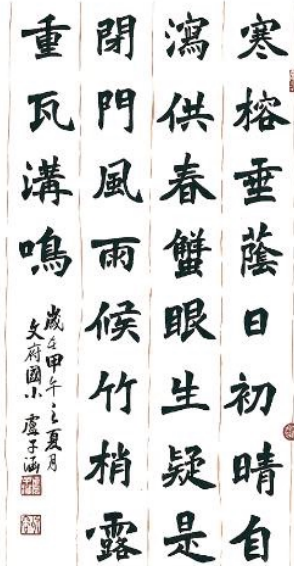 寒榕垂蔭日初晴自
瀉供春蟹眼生疑是
閉門風雨候竹梢露
重瓦溝鳴
歲在甲午之夏月
文府國小盧子涵